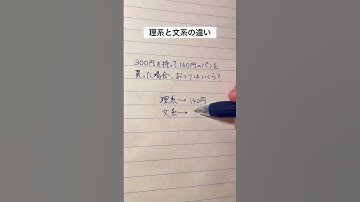 理系と文系の違い
300円を持って160円のパンを
買った場合、おつりはいくら?
理系→ 140円
文系→